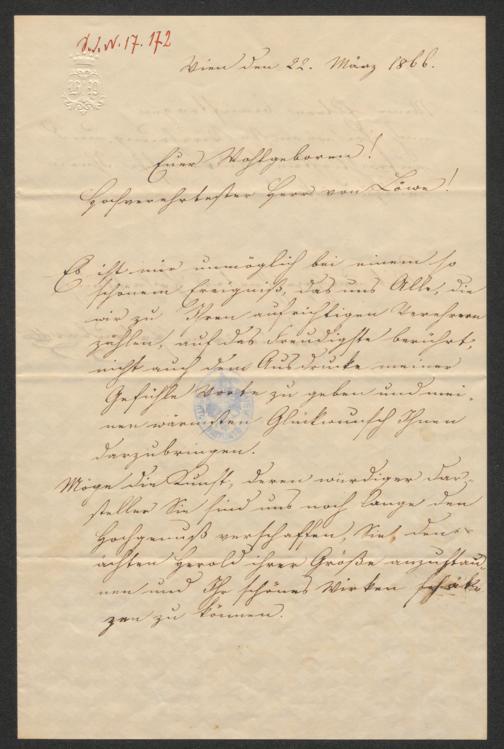 J. N. 17.172
Wien den 22. März 1866.
Euer Wohlgeboren!
Hochverehrtester Herr von Löwe!
Es ist mir unmöglich bei einem so
schönem Ereigniß, das uns Alle, die
wir zu Ihren aufrichtigen Verehrern
zählen, auf das Freudigste berührt,
nicht auch dem Ausdrucke meiner
Gefühle Worte zu geben und mei-
nen wärmsten Glückwunsch Ihnen
darzubringen.
Möge die Kunst, deren würdiger Dar-
steller Sie sind uns noch lange den
Hochgenuß verschaffen, Sie, den
ächten Herold ihrer Größe anzustau-
nen und Ihr schönes Wirken schät-
zen zu können.